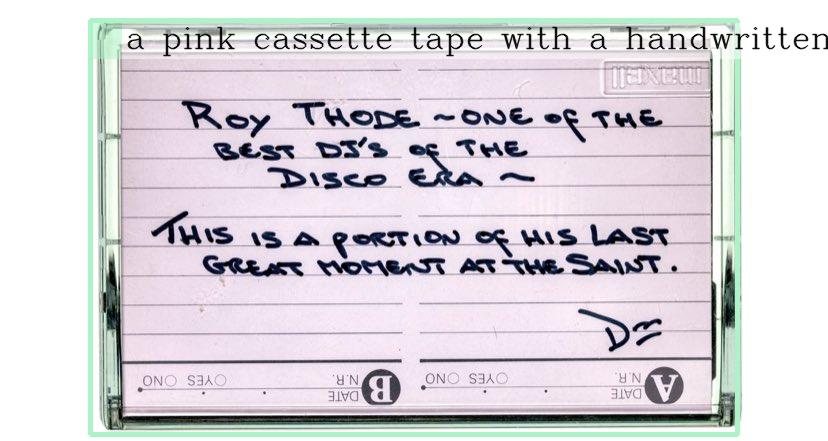 a pink cassette tape with a handwritten
maxell
ROY THODE ~ ONE OF THE
BEST DJ'S OF THE
DISCO ERA ~
THIS IS A PORTION OF HIS LAST
GREAT MOMENT AT THE SAINT.
A DATE N.R. YES NO
B DATE N.R. YES NO